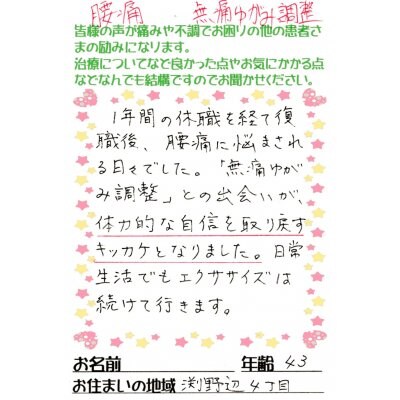 腰痛　無痛ゆがみ調整
皆様の声が痛みや不調でお困りの他の患者さ
まの励みになります。
治療についてなど良かった点やお気にかかる点
などなんでも結構ですのでお聞かせください。
1年間の休職を経て復
職後、腰痛に悩まされ
る日々でした。「無痛ゆが
み調整」との出会いが、
体力的な自信を取り戻す
キッカケとなりました。日常
生活でもエクササイズは
続けて行きます。
お名前　年齢 43
お住まいの地域 渕野辺4丁目